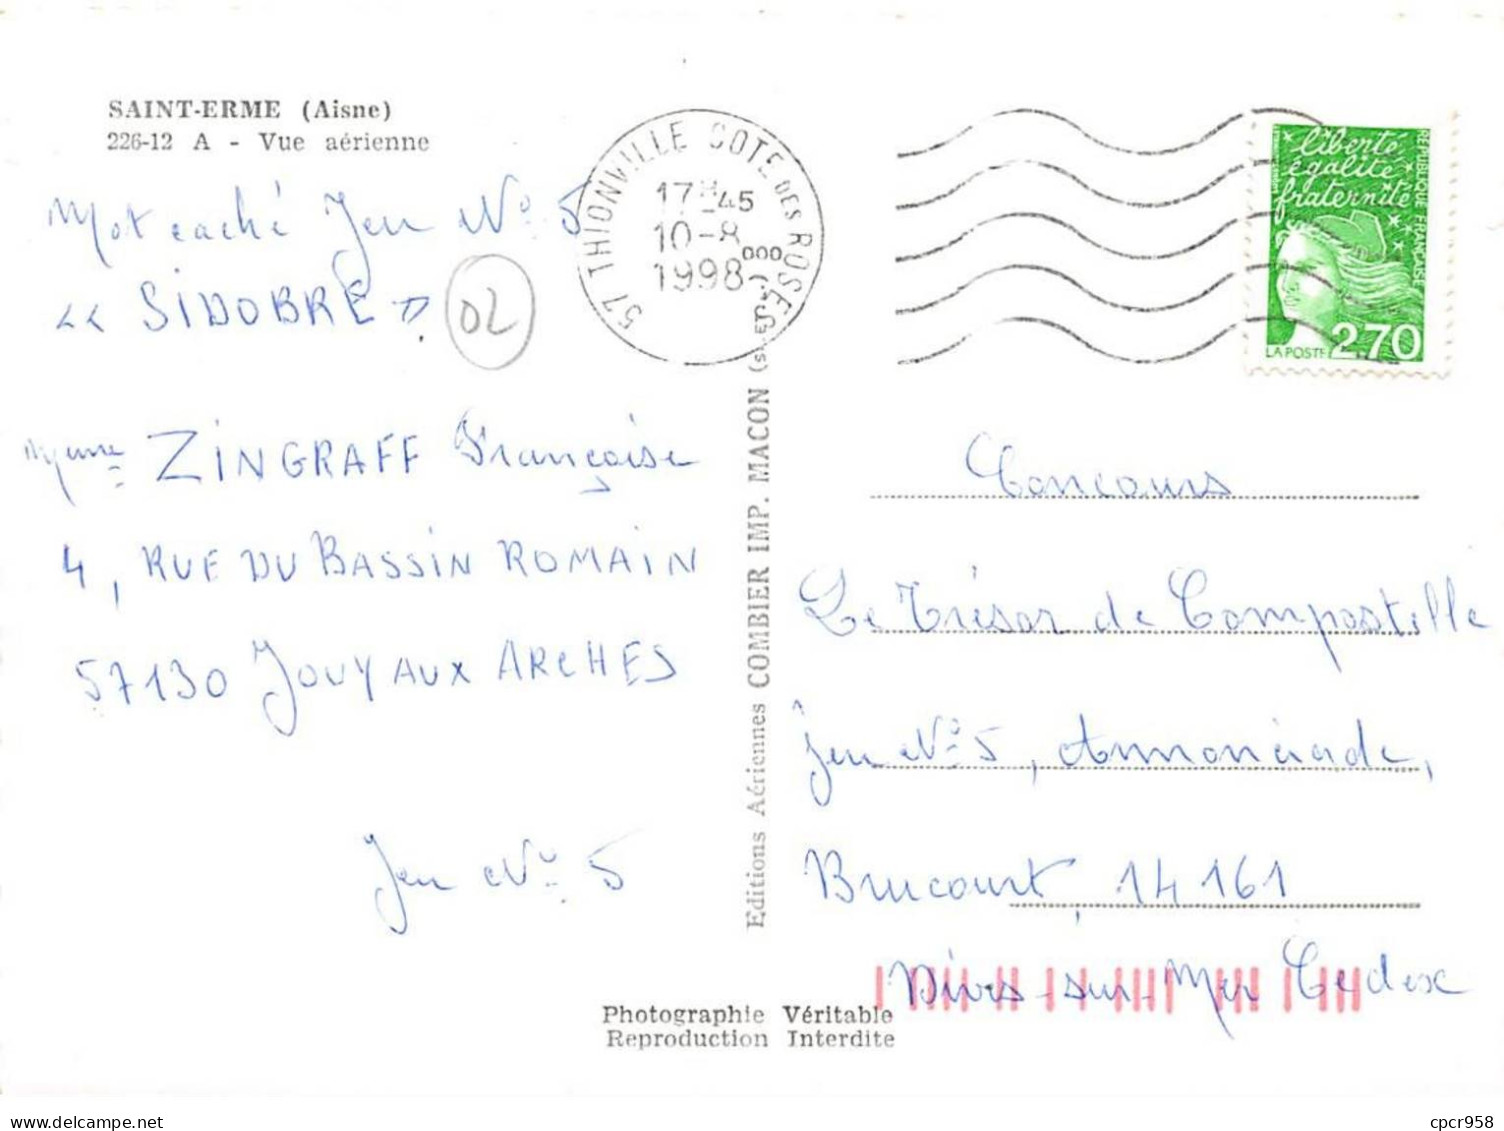 SAINT-ERME (Aisne)
226-12 A - Vue aérienne
Mot caché Jeu N° 5
<< SIDOBRE >>.
02
Mme ZINGRAFF Françoise
4, RUE DU BASSIN ROMAIN
57130 JOUY AUX ARCHES
Jeu N° 5
57 THIONVILLE COTE DES ROSES
17H45
10-8
1998
000
liberté
égalité
fraternité
REPUBLIQUE FRANÇAISE
LA POSTE 2,70
Editions Aériennes COMBIER IMP. MACON
Concours
Le Trésor de Compostelle
Jeu N° 5,
Brucourt, 14161
Dives-sur-Mer Cedex
Photographie Véritable
Reproduction Interdite
cpcr958